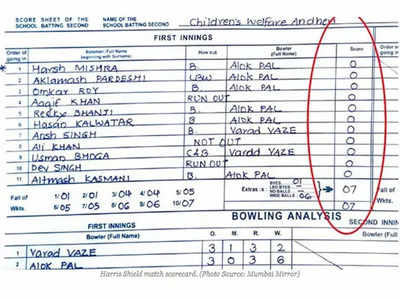 SCORE SHEET OF THE SCHOOL BATTING SECOND NAME OF THE SCHOOL BATTING SECOND Children's Welfare Andheri
FIRST INNINGS
Order of going in Batsman (Full Name) beginning with Surname How out Bowler (Full Name) Score Order of going in
1 Harsh MISHRA B. Alok PAL 0
2 PARDESHI LBW Alok PAL 0
3 Omkar ROY B. Alok PAL 0
4 Aaqif KHAN RUN OUT 0
5 BHANJI B. Alok PAL 0
6 Hasan KALWATAR B. Alok PAL 0
7 Ansh SINGH B. Varad VAZE 0
8 Ali KHAN NOT OUT 0
9 Usman BHOGA C&B Varad VAZE 0
10 Dev SINGH RUN OUT 0
11 Altmash KASMANI B. Alok PAL 0
Fall of Wkts. 1/01 2/01 3/04 4/04 5/05
6/05 7/05 8/06 9/06 10/07
Extras :- BYES 01 LEG BYES NO BALLS WIDE BALLS 06 07
07
Fall of Wkts.
BOWLING ANALYSIS
FIRST INNINGS
Bowler (Full Name) O. M. R. W.
1 Varad VAZE 3 1 3 2
2 Alok PAL 3 0 3 6
Harris Shield match scorecard. (Photo Source: Mumbai Mirror)